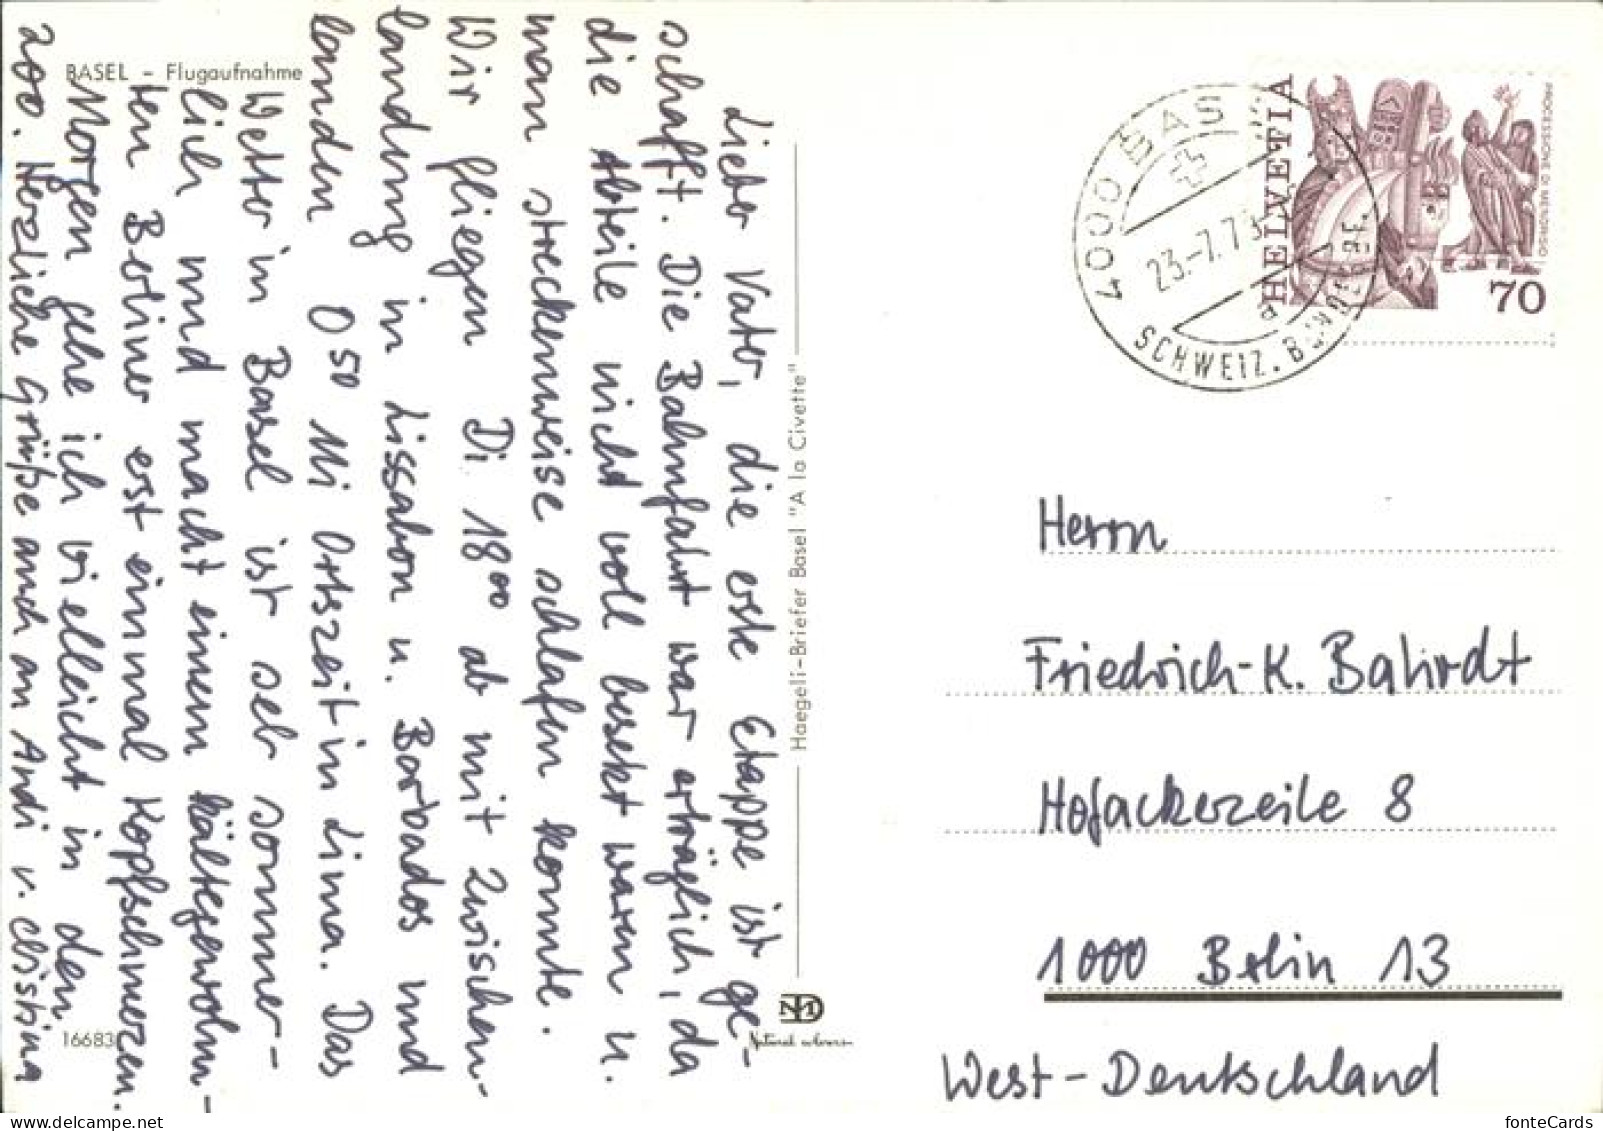 BASEL – Flugaufnahme
Lieber Vater, die erste Etappe ist ge-
schafft. Die Bahnfahrt war erträglich, da
die Abteile nicht voll besetzt waren u.
man streckenweise schlafen konnte.
Wir fliegen Di. 18⁰⁰ ab mit Zwischen-
landung in Lissabon u. Barbados und
landen 0⁵⁰ Mi Ortszeit in Lima. Das
Wetter in Basel ist sehr sommer-
lich und macht einem kältegewohn-
ten Berliner erst einmal Kopfschmerzen.
Morgen gehe ich vielleicht in den
Zoo. Herzliche Grüße auch an Andi v. Christina
16683
Haegeli-Briefer Basel "A la Civette"
Natural colours
4000 BASEL
23.-7.79
SCHWEIZ. BUNDESF.
HELVETIA
PROCESSIONE DI MENDRISIO
70
Herrn
Friedrich-K. Bahrdt
Hofackerzeile 8
1000 Berlin 13
West-Deutschland
fonteCards